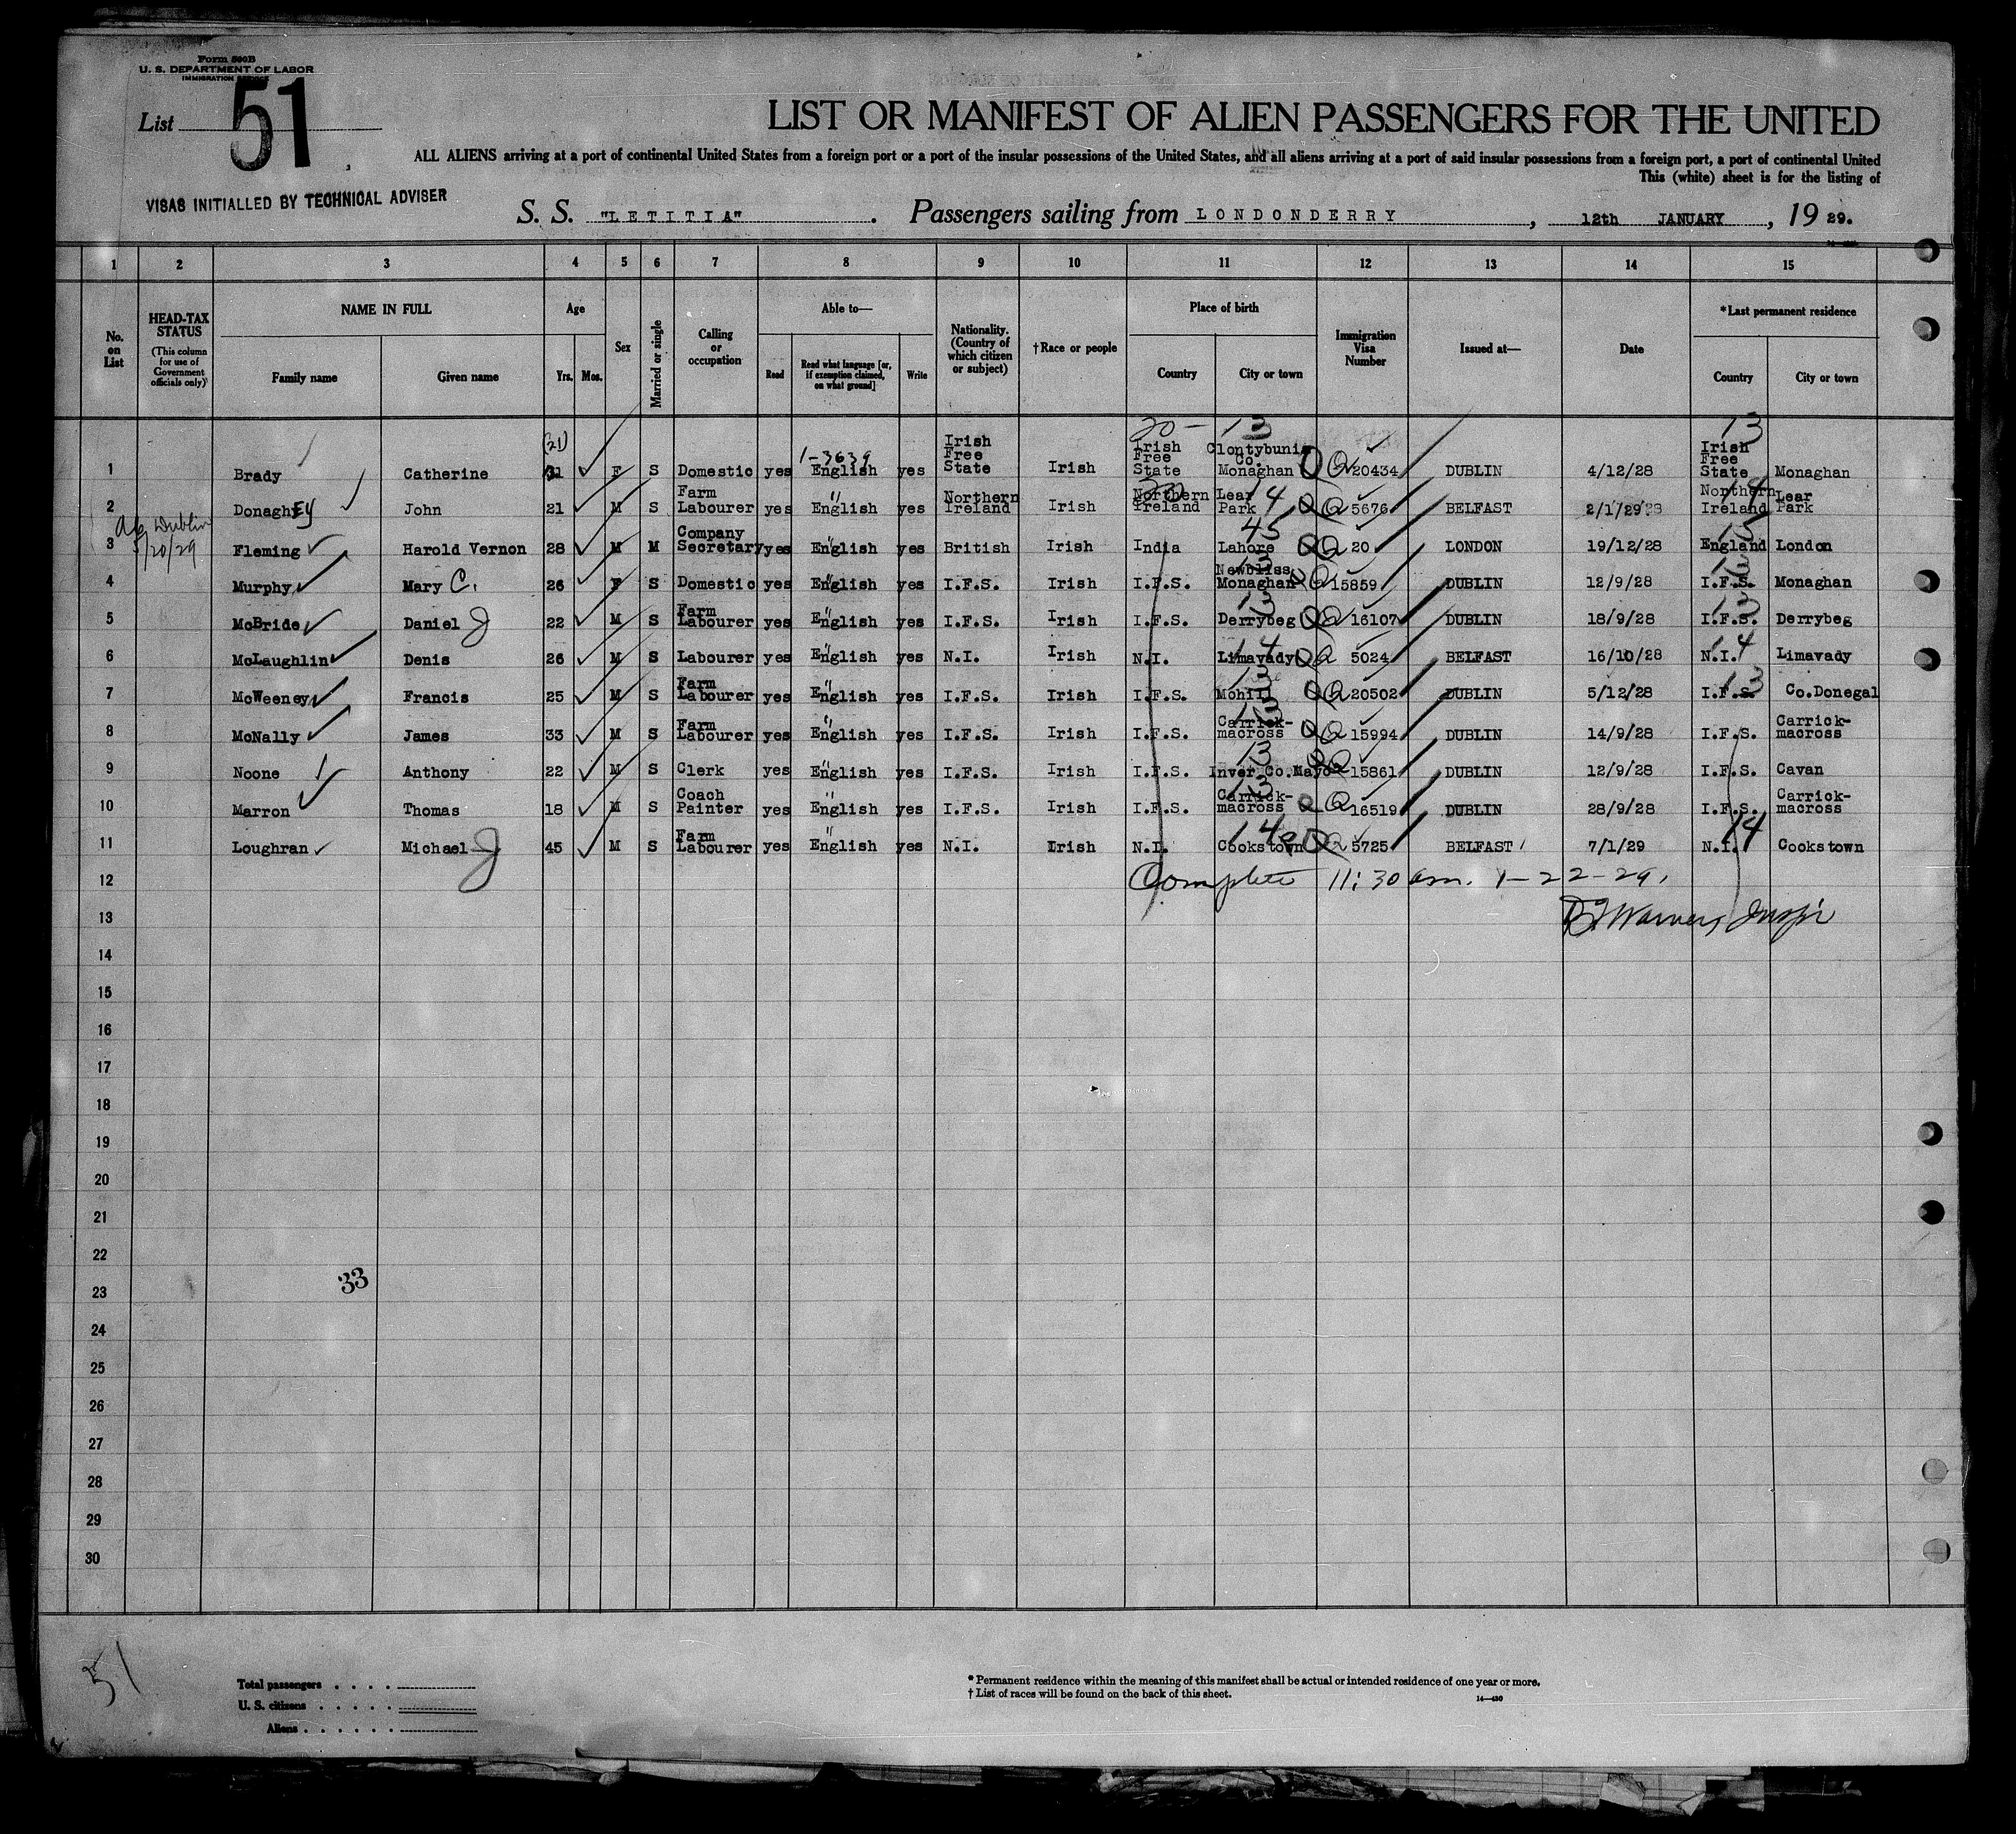 Form 500B
U. S. DEPARTMENT OF LABOR
IMMIGRATION SERVICE
List 51
LIST OR MANIFEST OF ALIEN PASSENGERS FOR THE UNITED
ALL ALIENS arriving at a port of continental United States from a foreign port or a port of the insular possessions of the United States, and all aliens arriving at a port of said insular possessions from a foreign port, a port of continental United
This (white) sheet is for the listing of
VISAS INITIALLED BY TECHNICAL ADVISER
S. S. "LETITIA". Passengers sailing from LONDONDERRY, 12th JANUARY, 19 29.
1 2 3 4 5 6 7 8 9 10 11 12 13 14 15
No. on List
HEAD-TAX STATUS (This column for use of Government officials only)
NAME IN FULL Family name Given name
Age Yrs. Mos.
Sex
Married or single
Calling or occupation
Able to— Read Read what language [or, if exemption claimed, on what ground] Write
Nationality. (Country of which citizen or subject)
†Race or people
Place of birth Country City or town
Immigration Visa Number
Issued at—
Date
*Last permanent residence Country City or town
(21) 1-3639 20- 13 13
1 Brady Catherine 21 F S Domestic yes English yes Irish Free State Irish Irish Free State Clontybunia Co. Monaghan 20434 DUBLIN 4/12/28 Irish Free State Monaghan
2 DonaghEy John 21 M S Farm Labourer yes English yes Northern Ireland Irish Northern Ireland Lear Park 14 5676 BELFAST 2/1/29 Northern Ireland 14 Lear Park
Dublin
/20/29
3 Fleming Harold Vernon 28 M M Company Secretary yes English yes British Irish India Lahore 45 20 LONDON 19/12/28 England 15 London
4 Murphy Mary C. 26 F S Domestic yes English yes I.F.S. Irish I.F.S. Newbliss Monaghan 15859 DUBLIN 12/9/28 I.F.S. Monaghan
5 McBride Daniel J 22 M S Farm Labourer yes English yes I.F.S. Irish I.F.S. Derrybeg 13 16107 DUBLIN 18/9/28 I.F.S. 13 Derrybeg
6 McLaughlin Denis 26 M S Labourer yes English yes N.I. Irish N.I. Limavady 14 5024 BELFAST 16/10/28 N.I. 14 Limavady
7 McWeeney Francis 25 M S Farm Labourer yes English yes I.F.S. Irish I.F.S. Mohill 20502 DUBLIN 5/12/28 I.F.S. 13 Co.Donegal
8 McNally James 33 M S Farm Labourer yes English yes I.F.S. Irish I.F.S. Carrick-macross 15994 DUBLIN 14/9/28 I.F.S. Carrick-macross
9 Noone Anthony 22 M S Clerk yes English yes I.F.S. Irish I.F.S. Inver Co.Mayo 13 15861 DUBLIN 12/9/28 I.F.S. Cavan
10 Marron Thomas 18 M S Coach Painter yes English yes I.F.S. Irish I.F.S. Carrick-macross 16519 DUBLIN 28/9/28 I.F.S. Carrick-macross
11 Loughran Michael J 45 M S Farm Labourer yes English yes N.I. Irish N.I. Cookstown 14 5725 BELFAST 7/1/29 N.I. 14 Cookstown
12 Complete 11:30 am. 1-22-29.
13 Warner, Insp'r
14
15
16
17
18
19
20
21
22
33
23
24
25
26
27
28
29
30
51
Total passengers
U. S. citizens
Aliens
* Permanent residence within the meaning of this manifest shall be actual or intended residence of one year or more.
† List of races will be found on the back of this sheet.
14—430